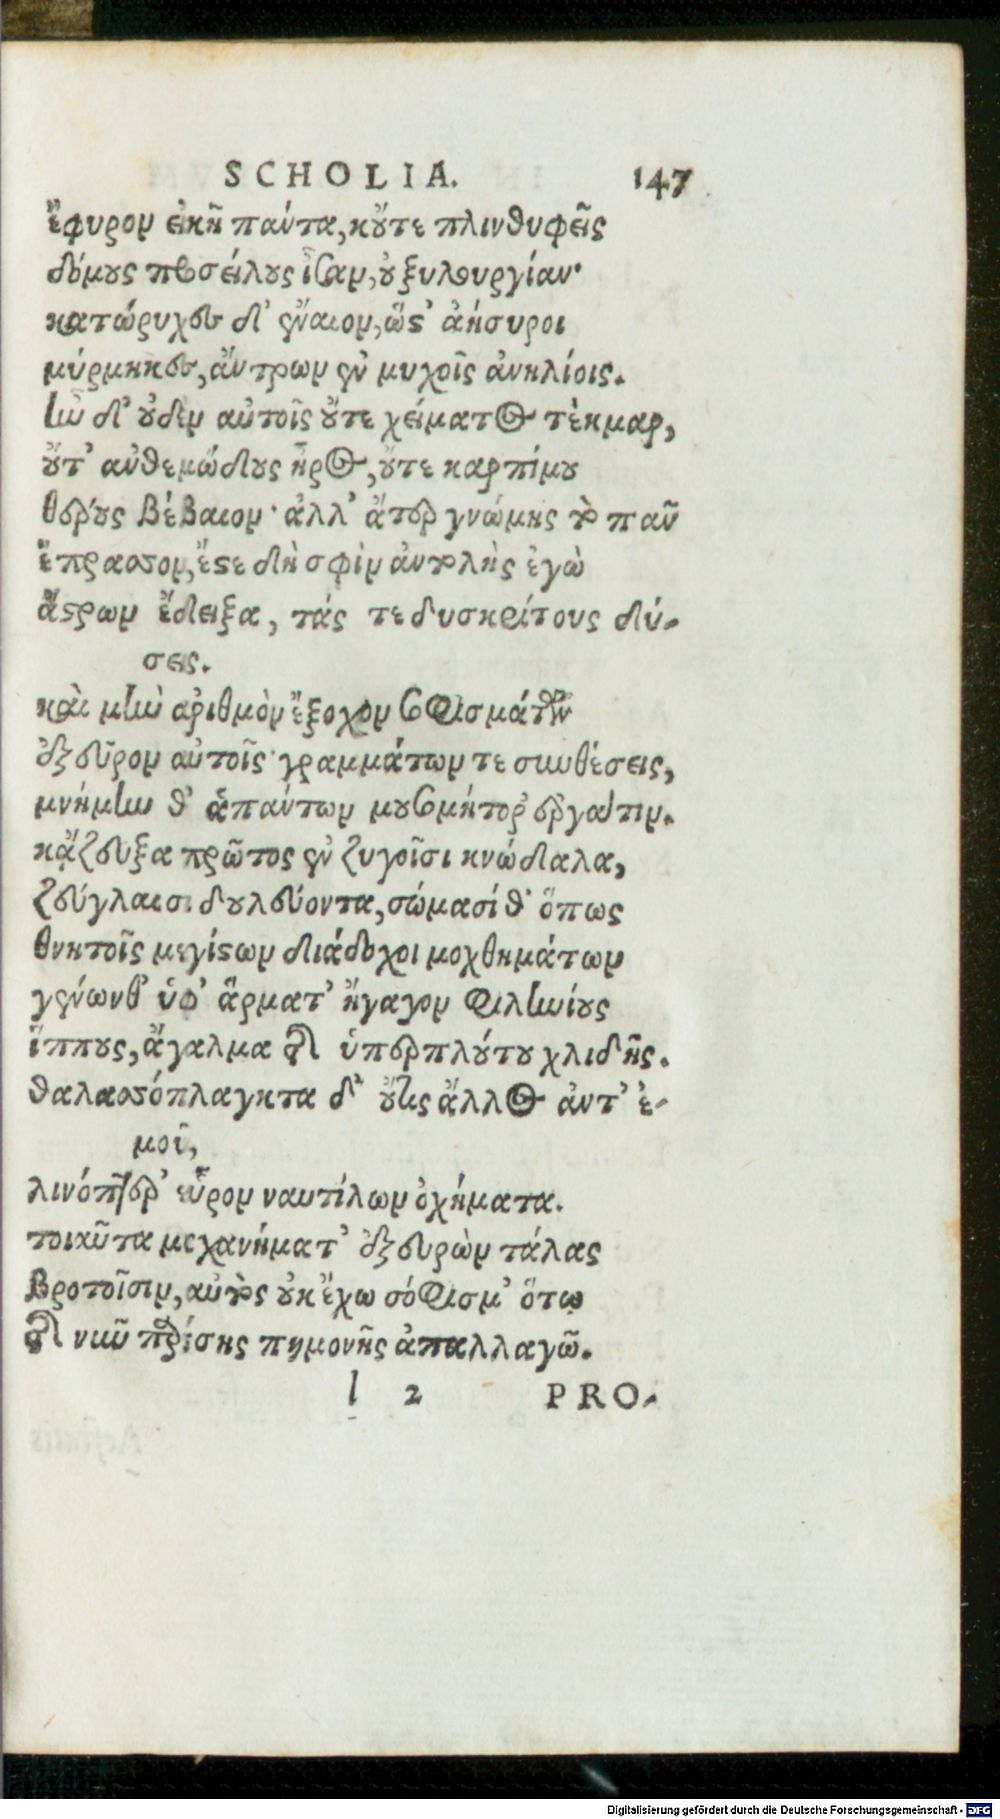 SCHOLIA. 147
ἔφυρον εἰκῆ πάντα, κοὔτε πλινθυφεῖς
δόμους προσείλους ἴσαν, οὐ ξυλουργίαν·
κατώρυχες δ' ἔναιον, ὥστ' ἀήσυροι
μύρμηκες, ἄντρων ἐν μυχοῖς ἀνηλίοις.
ἦν δ' οὐδὲν αὐτοῖς οὔτε χείματος τέκμαρ,
οὔτ' ἀνθεμώδους ἦρος, οὔτε καρπίμου
θέρους βέβαιον· ἀλλ' ἄτερ γνώμης τὸ πᾶν
ἔπρασσον, ἔστε δή σφιν ἀντολὴς ἐγὼ
ἄστρων ἔδειξα, τάς τε δυσκρίτους δύ-
σεις.
καὶ μὴν ἀριθμὸν ἔξοχον σοφισμάτων
ἐξεῦρον αὐτοῖς· γραμμάτων τε συνθέσεις,
μνήμην θ' ἁπάντων μουσομήτορ' ἐργάτιν.
κἄζευξα πρῶτος ἐν ζυγοῖσι κνώδαλα,
ζεύγλαισι δουλεύοντα, σώμασί θ' ὅπως
θνητοῖς μεγίστων διάδοχοι μοχθημάτων
γένωνθ' ὑφ' ἅρματ' ἤγαγον φιληνίους
ἵππους, ἄγαλμα τῆς ὑπερπλούτου χλιδῆς.
θαλασσόπλαγκτα δ' οὔτις ἄλλος ἀντ' ἐ-
μοῖ,
λινόπτερ' εὗρον ναυτίλων ὀχήματα.
τοιαῦτα μηχανήματ' ἐξευρὼν τάλας
βροτοῖσιν, αὐτὸς οὐκ ἔχω σόφισμ' ὅτῳ
τῆς νῦν παρούσης πημονῆς ἀπαλλαγῶ.
l 2 PRO-
Digitalisierung gefördert durch die Deutsche Forschungsgemeinschaft - DFG